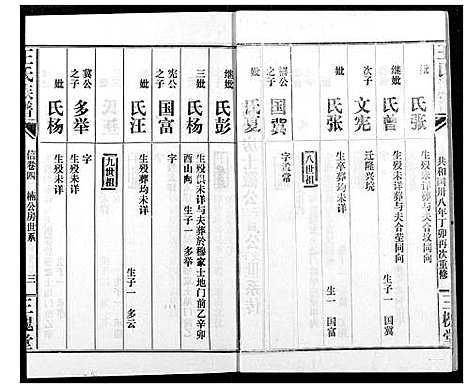 王氏
共和国卅八年丁卯再次重修
三槐堂
妣
氏张
生殁未详与夫合坟同向
继妣
氏曾
生殁未详葬与夫合茔同向
生子一 国冀
次子
文宪
迁隆兴垸
妣
氏张
生卒葬均未详
生子一 国富
八世祖
公之子
国冀
字 常
妣
氏夏
继妣
氏彭
三妣
氏杨
生殁俱未详与夫葬於穆家土地门前乙辛卯
酉山向 生子一 多举
宪公之子
国富
字
生殁未详
妣
氏汪
生殁葬均未详
生子一 多云
九世祖
冀公之子
多举
字
生殁未详
妣
氏杨
生殁未详
王氏族谱
信卷四 楠公房世系
三
三槐堂